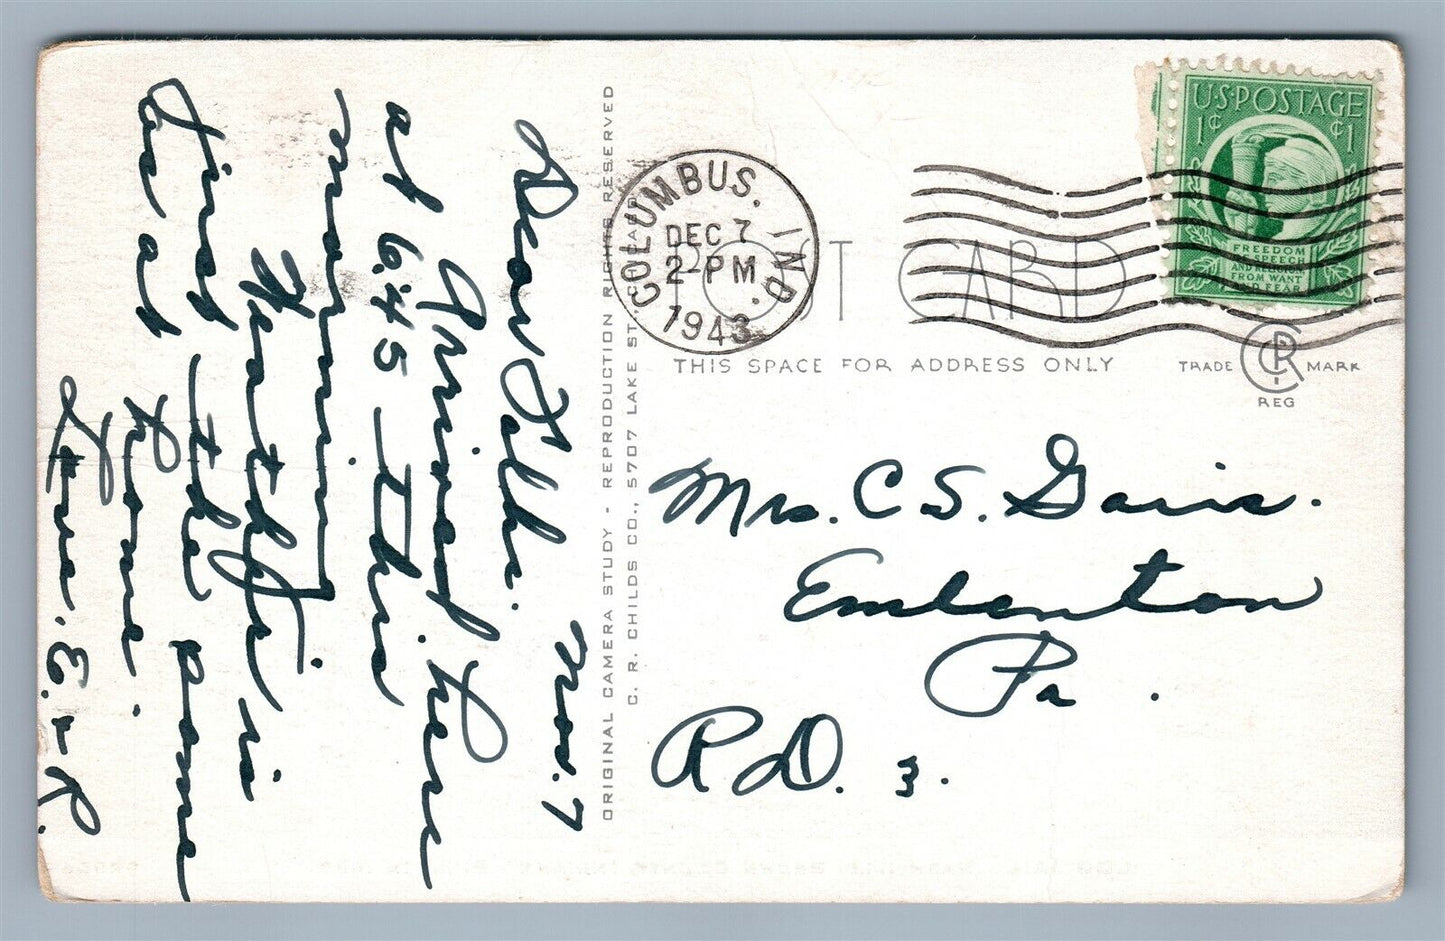 Nov. 7
Dear Folks.
Arrived here
at 6:45 this
morning
Weather is
fine the same
as at home
Love. E. R.
ORIGINAL CAMERA STUDY - REPRODUCTION RIGHTS RESERVED
C. R. CHILDS CO., 5707 LAKE ST.,
COLUMBUS, IND.
DEC 7
2-PM
1943
POST CARD
THIS SPACE FOR ADDRESS ONLY
TRADE CR MARK
REG
U.S. POSTAGE
1¢ ¢1
FREEDOM
OF SPEECH
AND RELIGION
FROM WANT
AND FEAR
Mrs. C S. Davis.
Emlenton
Pa.
R D. 3.